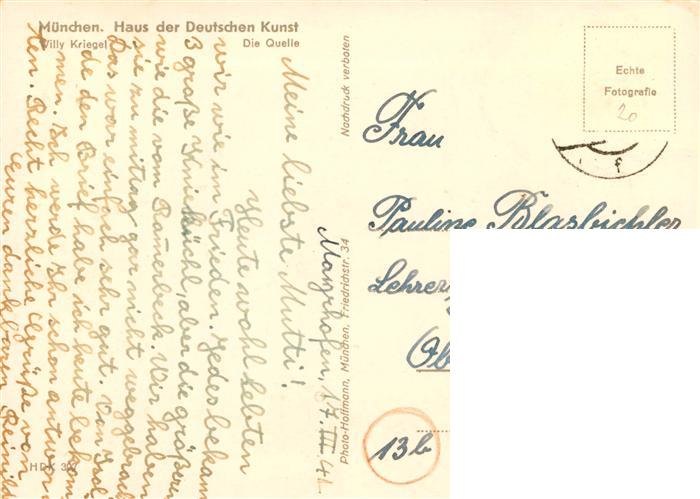 München. Haus der Deutschen Kunst
Willy Kriegel Die Quelle
Mayrhofen, 17. III 41
Meine liebste Mutti!
Heute wohl lebten
wir wie im Frieden. Jeder bekam
3 große Knieküchl, aber die größeren
wie die vom Bauerbeck. Wir haben
sie zu mittag gar nicht weggebracht
Das war einfach sehr gut. Von
de den Brief habe ich heute bekom
men. Ich werde Ihr schon antwor
ten. Recht herrliche Grüße von
Euren dankbaren
HDK 307
Nachdruck verboten
Photo-Hoffmann, München, Friedrichstr. 34
Echte
Fotografie
20
Frau
Pauline Blasbichler
Lehrer
Ob
13b